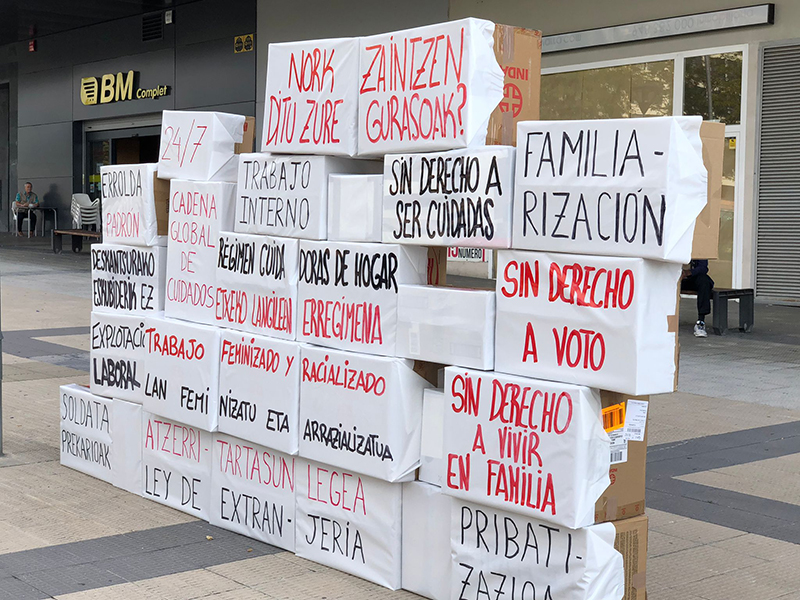 BM
Complet
NORK
DITU ZURE
ZAINTZEN
GURASOAK?
24/7
ERROLDA
PADRÓN
CADENA
GLOBAL DE
CUIDADOS
TRABAJO
INTERNO
SIN DERECHO A
SER CUIDADAS
FAMILIA-
RIZACIÓN
DESMUNTURAKO
ESKUBIDERIK EZ
RÉGIMEN CUIDA
DORAS DE HOGAR
ETXEKO LANGILEEN
ERREGIMENA
SIN DERECHO
A VOTO
EXPLOTACIÓ
LABORAL
TRABAJO
FEMINIZADO Y
RACIALIZADO
LAN FEMI
NIZATU ETA
ARRAZIALIZATUA
SIN DERECHO
A VIVIR
EN FAMILIA
SOLDATA
PREKARIOAK
ATZERRI-
TARTASUN
LEGEA
LEY DE
EXTRAN-
JERÍA
PRIBATI-
ZAZIOA